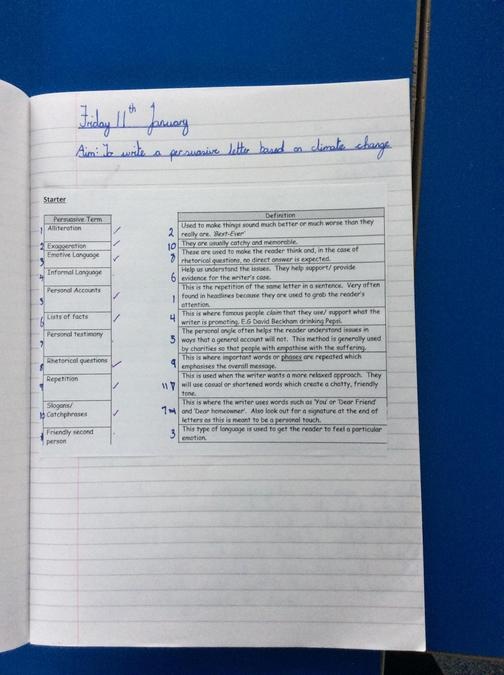 Friday 11th January
Aim: To write a persuasive letter based on climate change
Starter
Persuasive Term
1 Alliteration
2 Exaggeration
3 Emotive Language
4 Informal Language
5 Personal Accounts
6 Lists of facts
7 Personal testimony
8 Rhetorical questions
9 Repetition
Slogans/
10 Catchphrases
Friendly second
person
Definition
2 Used to make things sound much better or much worse than they
really are. 'Best-Ever'
10 They are usually catchy and memorable.
8 These are used to make the reader think and, in the case of
rhetorical questions, no direct answer is expected.
6 Help us understand the issues. They help support/ provide
evidence for the writer's case.
This is the repetition of the same letter in a sentence. Very often
1 found in headlines because they are used to grab the reader's
attention.
4 This is where famous people claim that they use/ support what the
writer is promoting. E.G David Beckham drinking Pepsi.
The personal angle often helps the reader understand issues in
5 ways that a general account will not. This method is generally used
by charities so that people with empathise with the suffering.
9 This is where important words or phases are repeated which
emphasises the overall message.
This is used when the writer wants a more relaxed approach. They
11 will use casual or shortened words which create a chatty, friendly
tone.
This is where the writer uses words such as 'You' or 'Dear Friend'
7 and 'Dear homeowner'. Also look out for a signature at the end of
letters as this is meant to be a personal touch.
3 This type of language is used to get the reader to feel a particular
emotion.